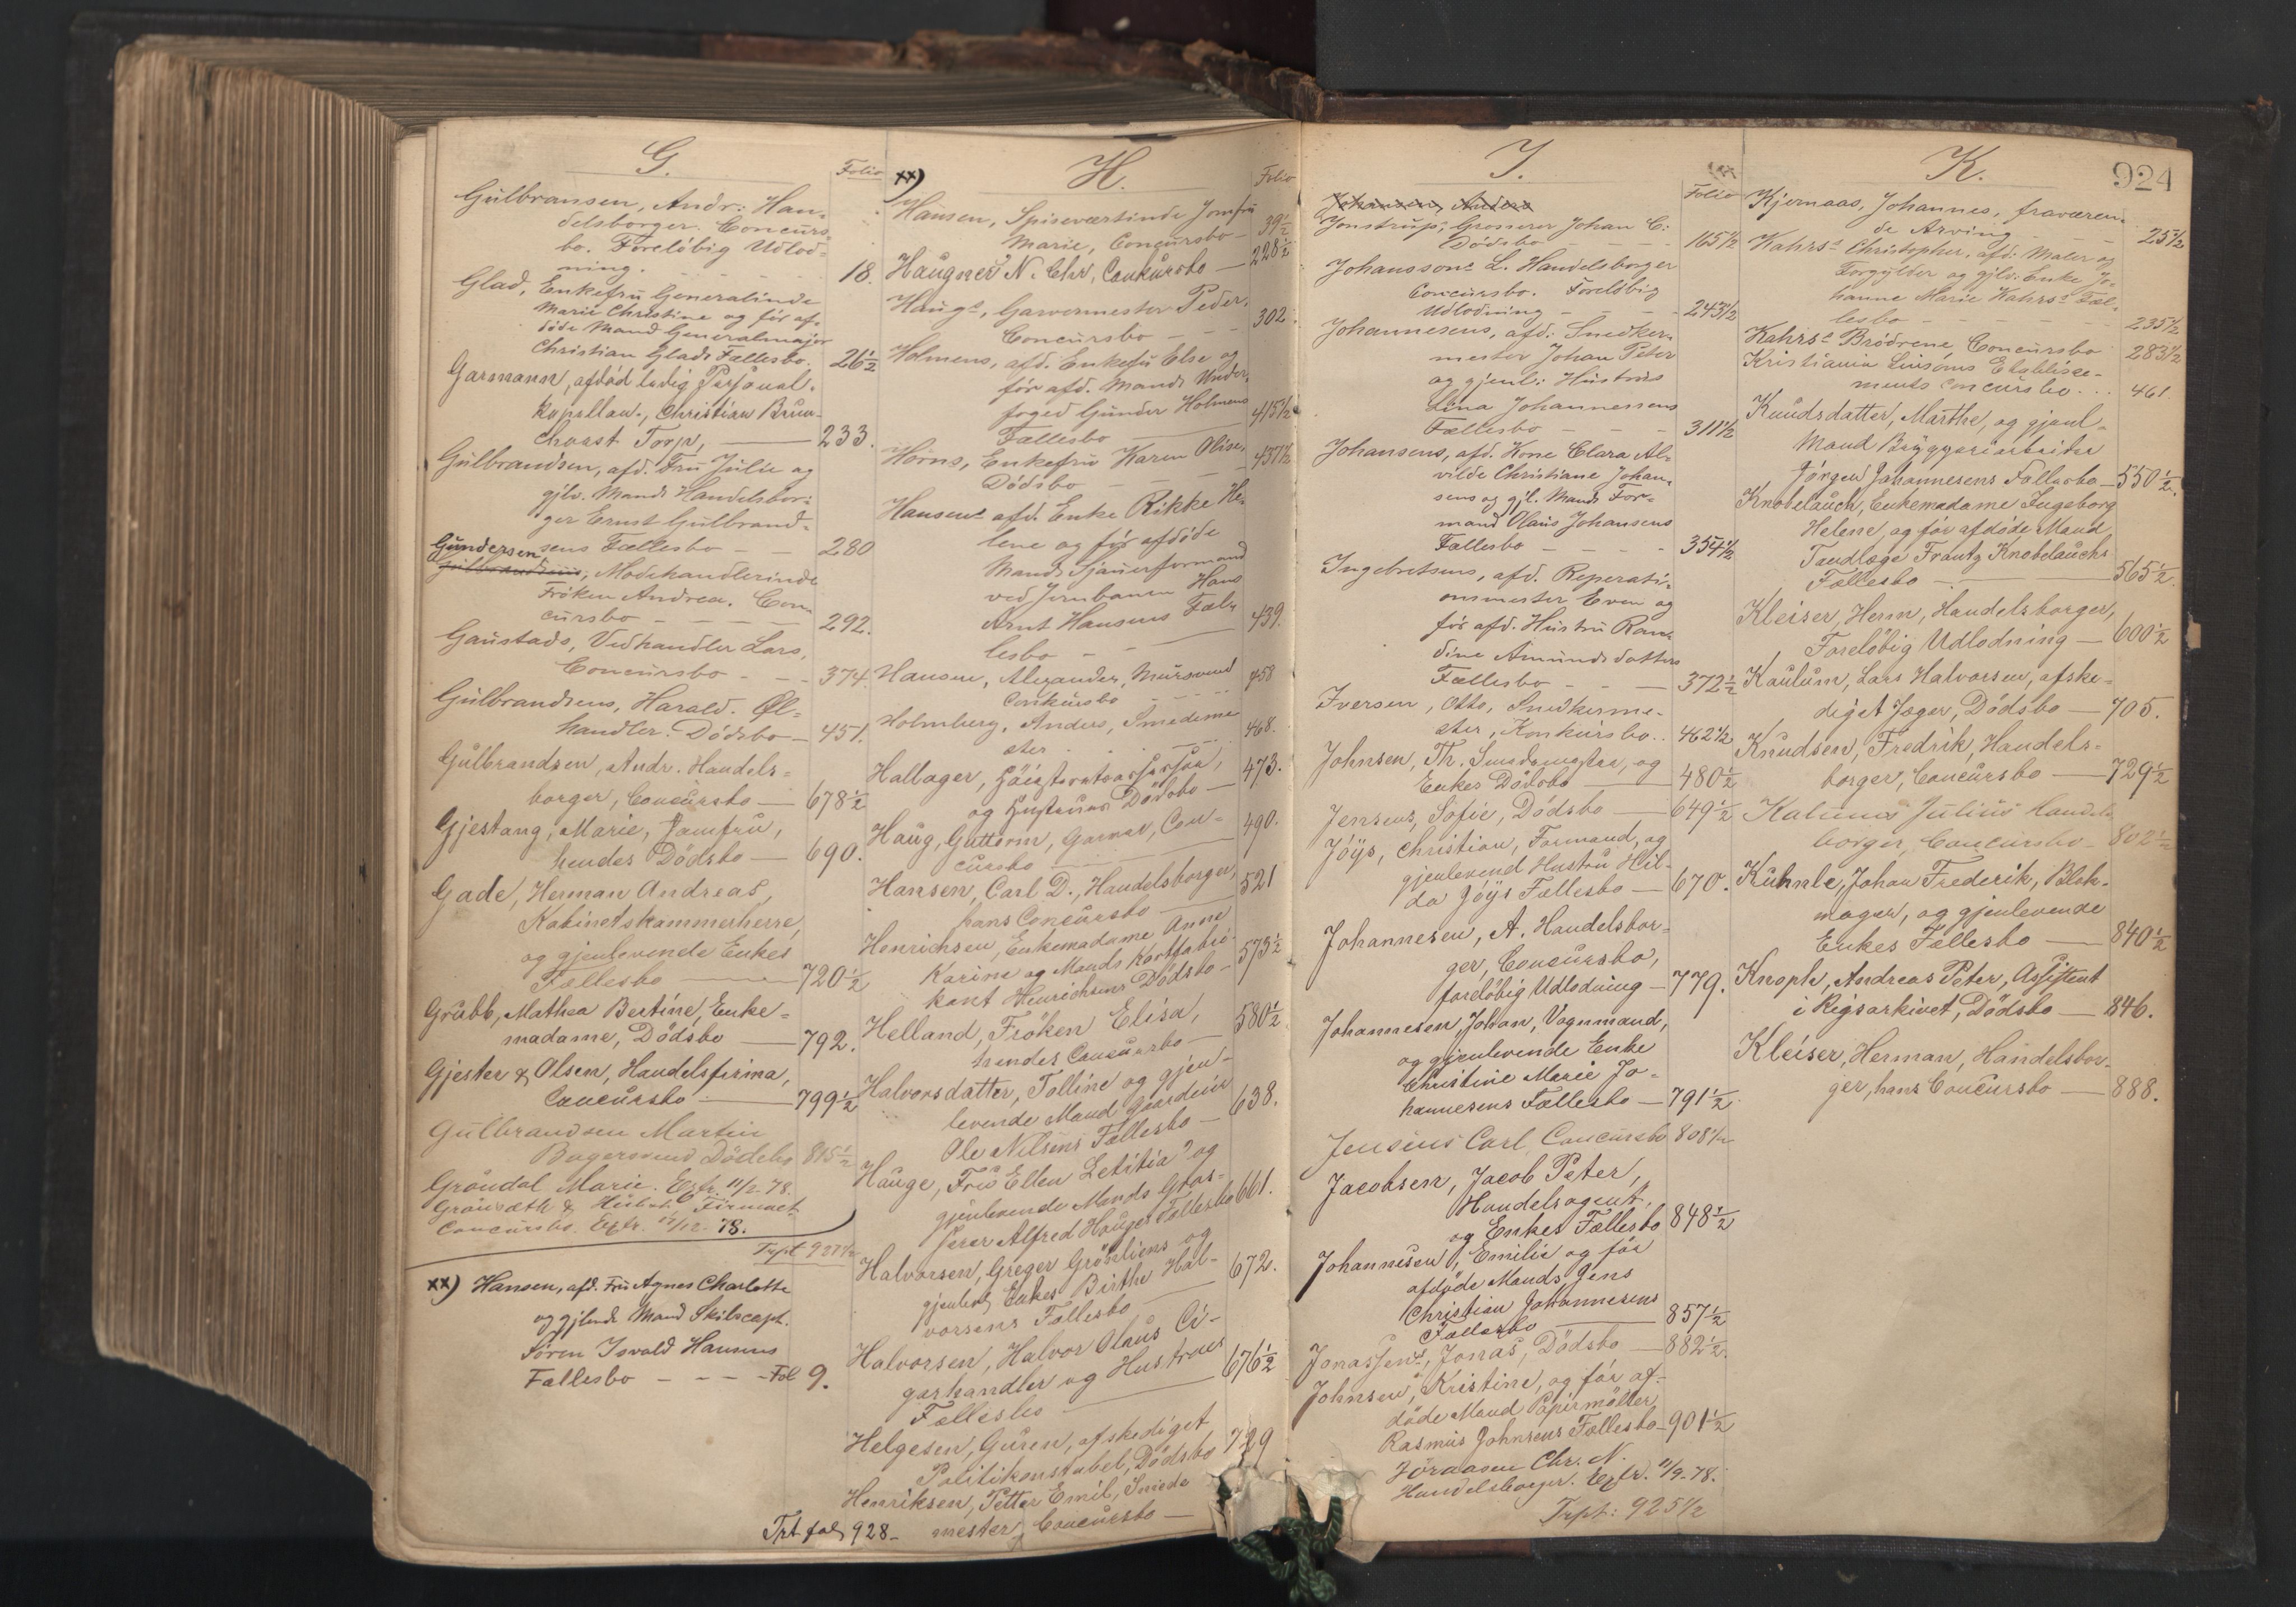 G.
Folio
Gulbransen, Andr: Han-
delsborger. Concurs-
bo. Foreløbig Udlod-
ning. 18.
Glad, Enkefru Generalinde
Marie Christine og før af-
døde Mand Generalmajor
Christian Glads Fællesbo. 26½
Garmann, afdød ledig Personal-
kapellan, Christian Brun-
chorst Torp, 233.
Gulbrandsen, afd. Fru Julie og
gjlv. Mands Handelsbor-
ger Ernst Gulbrand-
sens Fællesbo - - 280
Gundersen
Modehandlerinde
Frøken Andrea. Con-
cursbo - - - 292.
Gaustads, Vedhandler Lars,
Concursbo - - - 374.
Gulbrandsens, Harald. Øl-
handler. Dødsbo - 451.
Gulbrandsen, Andr. Handels-
borger, Concursbo — 678½
Gjestang, Marie, Jomfru,
hendes Dødsbo — 690.
Gade, Herman Andreas,
Kabinetskammerherre,
og gjenlevende Enkes
Fællesbo — 720½
Grubb, Mathea Bertine, Enke-
madame, Dødsbo — 792.
Gjester & Olsen, Handelsfirma,
Concursbo — 799½
Gulbrandsen Martin
Bagersvend Dødsbo 815½
Grøndal Marie. Extr. 11/2 78.
Firmaet
Concursbo. Extr. 17/12 - 78.
Trpt 927½
xx) Hansen, afd. Fru Agnes Charlotte
og gjlvnde Mand Skibscapt.
Søren Isvald Hansens
Fællesbo - - - - Fol 9.
xx)
H.
Folio
Hansen, Spiseværtinde Jomfru
Marie, Concursbo - 39½
Haugners N. Chr, Concursbo — 228½
Haugs, Garvermester Peder,
Concursbo - - - 302.
Holmens, afd. Enkefru Else og
før afd. Mands Under-
foged Gunder Holmens
Fællesbo 415½
Horns, Enkefru Karen Olise,
Dødsbo - - - 437½
Hansens afd. Enke Rikke He-
lene og før afdøde
Mands Sjauerformand
ved Jernbanen Hans
Arnt Hansens Fæl-
lesbo - - 439.
Hansen, Alexander, Mursvend
Conkursbo - - - 458
Holmberg, Anders, Smedeme-
ster - - - 468.
Hallager, Høiesteretsassessor,
og Hustrues Dødsbo — 473.
Haug, Guttorm, Garver, Con-
cursbo — 490.
Hansen, Carl D., Handelsborger,
hans Concursbo — 521
Henrichsen, Enkemadame Anne
Karine og Mands Kortfabri-
kant Henrichsens Dødsbo - 573½
Helland, Frøken Elisa,
hendes Concursbo — 580½
Halvorsdatter, Tolline og gjen-
levende Mand Gaardeier
Ole Nilsens Fællesbo — 638.
Hauge, Fru Ellen Letitia og
gjenlevende Mands Gros-
serer Alfred Hauges Fællesbo 661.
Halvorsen, Greger Grønliens og
gjenlevd Enkes Birthe Hal-
vorsens Fællesbo — 672.
Halvorsen, Halvor Olaus Ci-
garhandler og Hustrues
Fællesbo — 676½
Helgesen, Guren, afskediget
Politikonstabel, Dødsbo 729
Henriksen, Petter Emil, Smede
mester, Concursbo —
Trt fol 928-
I.
Folio
Johansson, Anders
Jonstrups, Grosserer Johan C:
Dødsbo - - - 165½
Johanssons L. Handelsborger
Concursbo. Foreløbig
Udlodning - - - 243½
Johannesens, afd: Snedker-
mester Johan Peter
og gjenl: Hustrus
Lina Johannessens
Fællesbo - - - 311½
Johansens, afd. Kone Clara Al-
vilde Christiane Johan-
sens og gjl. Mands For-
mand Olaus Johansens
Fællesbo - - - 354½
Ingebretsens, afd. Reperati-
onsmester Even og
før afd. Hustru Ran-
dine Amundsdatters
Fællesbo - - - 372½
Iversen, Otto, Snedkerme-
ster, Konkursbo.. 462½
Johnsen, Th. Smedemester, og
Enkes Dødsbo — 480½
Jensens, Sofie, Dødsbo — 649½
Jøys, Christian, Formand, og
gjenlevend Hustru Hil-
da Jøys Fællesbo — 670.
Johannesen, A. Handelsbor-
ger, Concursbo,
foreløbig Udlodning - 779.
Johannesen, Johan, Vognmand,
og gjenlevende Enke
Christine Marie Jo-
hannesens Fællesbo — 791½
Jensens Carl Concursbo 808½
Jacobsen, Jacob Peter,
Handelsagent,
og Enkes Fællesbo 848½
Johannesen, Emilie og før
afdøde Mands Jens
Christian Johannesens
Fællesbo — 857½
Jonassens, Jonas, Dødsbo — 882½
Johnsen, Kristine, og før af-
døde Mand Papirmøller
Rasmus Johnsens Fællesbo - 901½
Jøraasen Chr. N.
Handelsborger. Extr. 11/9 - 78.
Trpt: 925½
K.
924
Kjernaas, Johannes, fraværen-
de Arving - - - 25½
Kahrs' Christopher, afd: Maler og
Forgylder og gjlv: Enke Jo-
hanne Marie Kahrs's Fæl-
lesbo - - - 235½
Kahrs' Brødrene, Concursbo 283½
Kristiania Linsøms Etablisse-
ments Concursbo. . . 461
Knudsdatter, Marthe, og gjenl-
Mand Bryggeriarbeider
Jørgen Johannesens Fællesbo — 550½
Knobelauch, Enkemadame Ingeborg
Helene, og før afdøde Mand
Tandlæge Frantz Knobelauchs
Fællesbo — 565½
Kleiser, Herm, Handelsborger,
Foreløbig Udlodning — 600½
Kaulum, Lars Halvorsen, afske-
diget Jæger, Dødsbo — 705.
Knudsen, Fredrik, Handels-
borger, Concursbo — 729½
Julius Handels
borger, Concursbo - 802½
Kühnle, Johan Frederik, Blok-
mager, og gjenlevende
Enkes Fællesbo — 840½
Knoph, Andreas Peter, Assistent
i Rigsarkivet, Dødsbo — 846.
Kleiser, Herman, Handelsbor-
ger, hans Concursbo — 888.